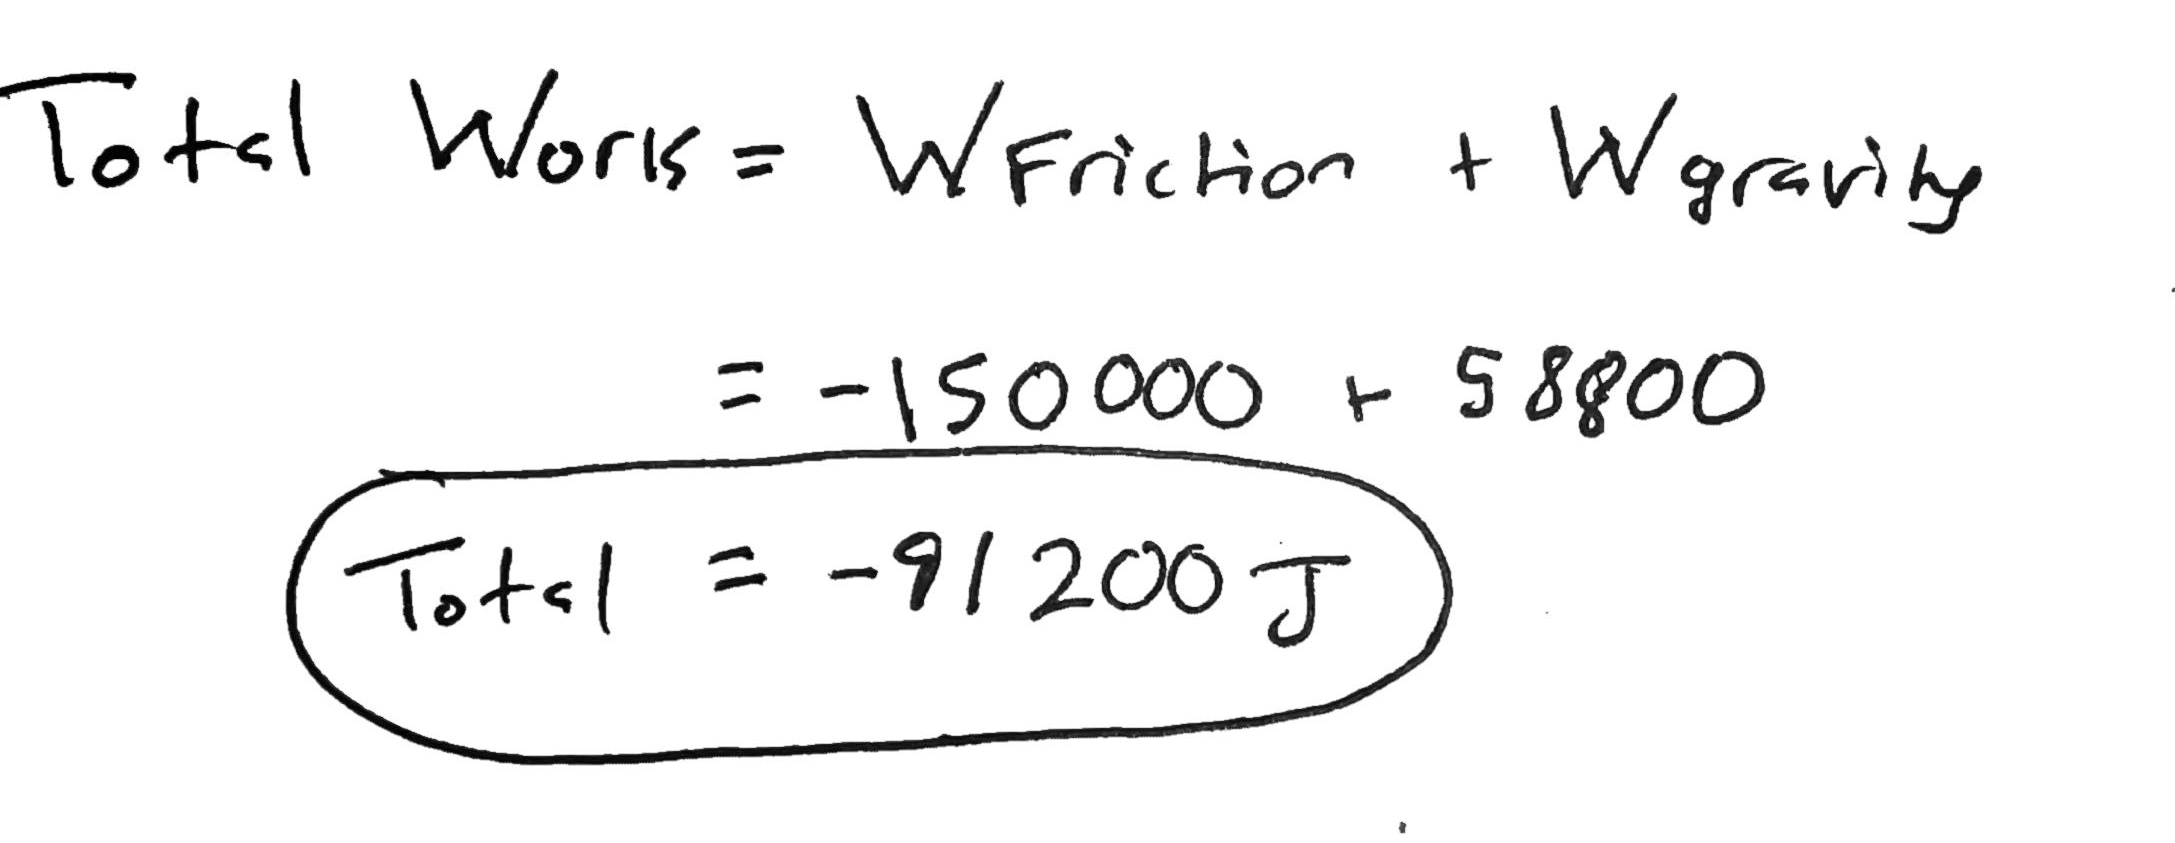 Total Work = W Friction + W gravity
= -150000 + 58800
Total = -91200 J